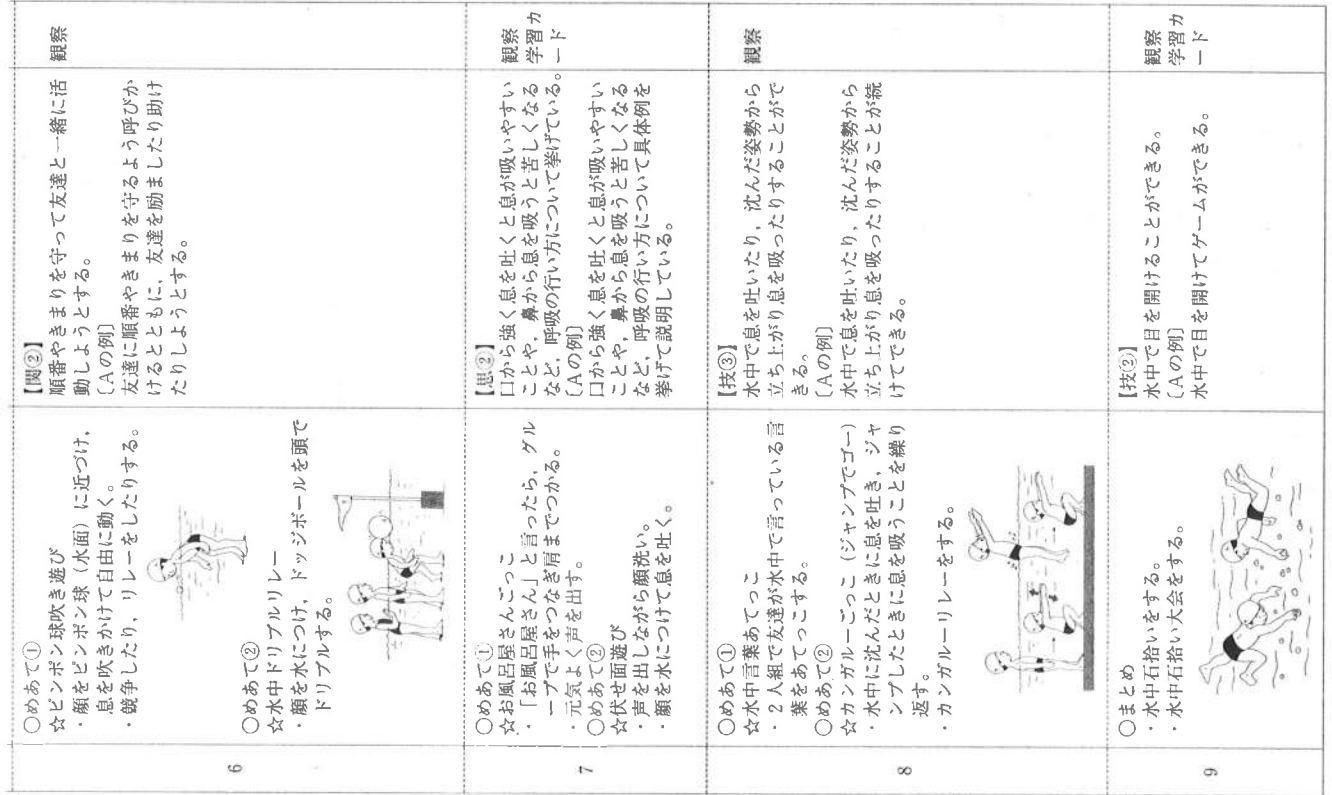 6
○めあて①
☆ピンポン球吹き遊び
・顔をピンポン球（水面）に近づけ，
息を吹きかけて自由に動く。
・競争したり，リレーをしたりする。
○めあて②
☆水中ドリブルリレー
・顔を水につけ，ドッジボールを頭で
ドリブルする。
【関②】
順番やきまりを守って友達と一緒に活
動しようとする。
〔Aの例〕
友達に順番やきまりを守るよう呼びか
けるとともに，友達を励ましたり助け
たりしようとする。
観察
7
○めあて①
☆お風呂屋さんごっこ
・「お風呂屋さん」と言ったら，グル
ープで手をつなぎ肩までつかる。
・元気よく声を出す。
○めあて②
☆伏せ面遊び
・声を出しながら顔洗い。
・顔を水につけて息を吐く。
【思②】
口から強く息を吐くと息が吸いやすい
ことや，鼻から息を吸うと苦しくなる
など，呼吸の行い方について挙げている。
〔Aの例〕
口から強く息を吐くと息が吸いやすい
ことや，鼻から息を吸うと苦しくなる
など，呼吸の行い方について具体例を
挙げて説明している。
観察
学習カ
ード
8
○めあて①
☆水中言葉あてっこ
・2人組で友達が水中で言っている言
葉をあてっこする。
○めあて②
☆カンガルーごっこ（ジャンプでゴー）
・水中に沈んだときに息を吐き，ジャ
ンプしたときに息を吸うことを繰り
返す。
・カンガルーリレーをする。
【技③】
水中で息を吐いたり，沈んだ姿勢から
立ち上がり息を吸ったりすることがで
きる。
〔Aの例〕
水中で息を吐いたり，沈んだ姿勢から
立ち上がり息を吸ったりすることが続
けてできる。
観察
9
○まとめ
・水中石拾いをする。
・水中石拾い大会をする。
【技②】
水中で目を開けることができる。
〔Aの例〕
水中で目を開けてゲームができる。
観察
学習カ
ード